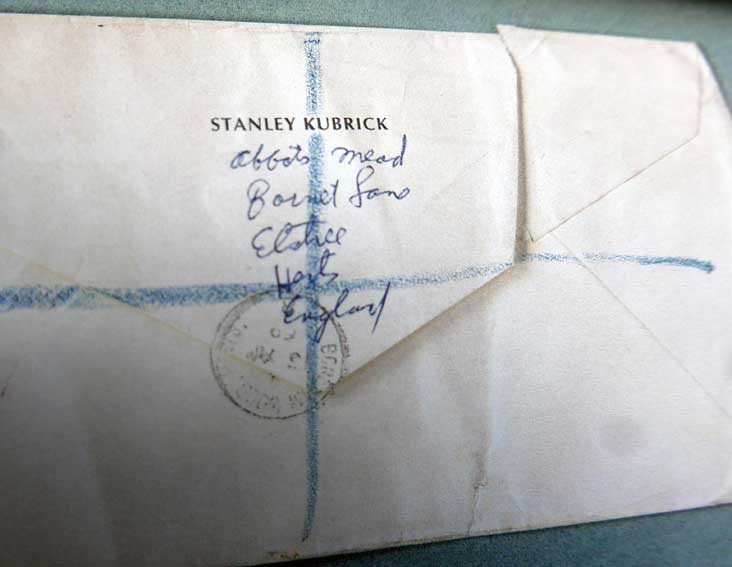 STANLEY KUBRICK
Abbots Mead
Barnet Lane
Elstree
Herts
England